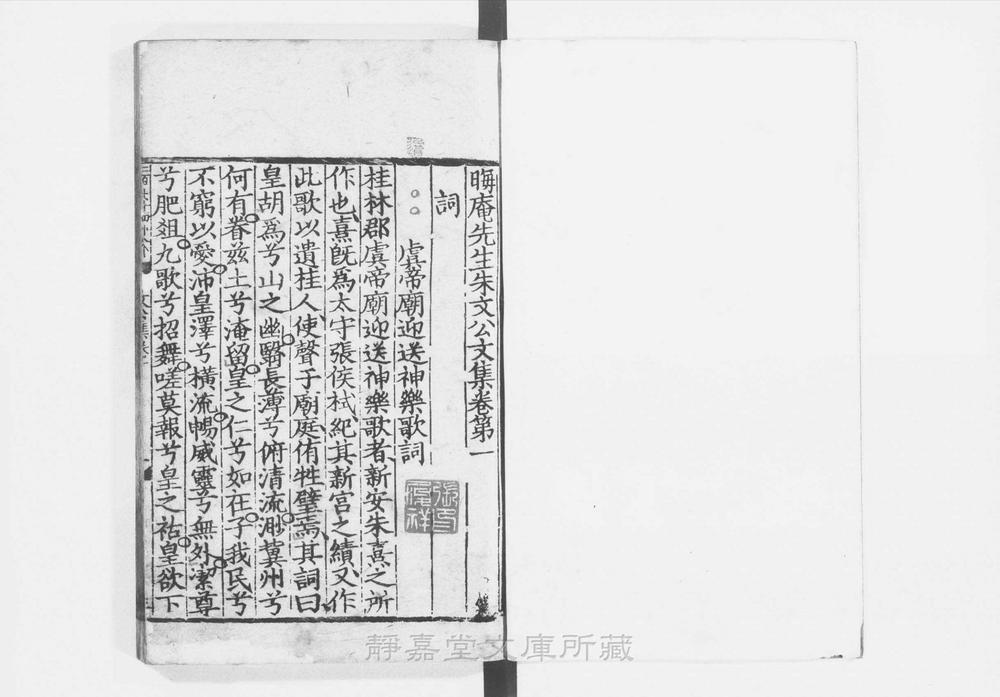 晦庵先生朱文公文集卷第一
詞
虞帝廟迎送神樂歌詞
桂林郡虞帝廟迎送神樂歌者新安朱熹之所
作也熹旣爲太守張侯栻紀其新宮之績又作
此歌以遺桂人使聲于廟庭侑牲璧焉其詞曰
皇胡爲兮山之幽翳長薄兮俯清流渺冀州兮
何有眷兹土兮淹留皇之仁兮如在子我民兮
不窮以愛沛皇澤兮橫流暢威靈兮無外潔尊
兮肥爼九歌兮招舞嗟莫報兮皇之祜皇欲下
靜嘉堂文庫所藏